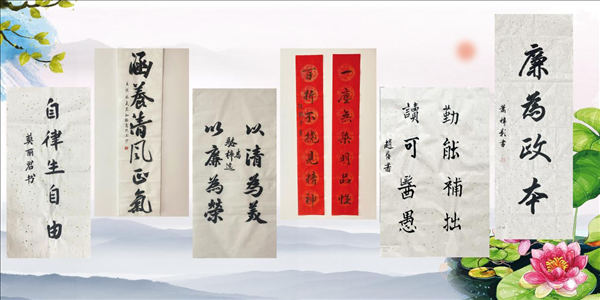 自律生自由
莫丽君书
涵養清風正氣
以清為美
以廉為榮
一塵無染明品性
百折不撓見精神
勤能補拙
讀可醫愚
廉為政本